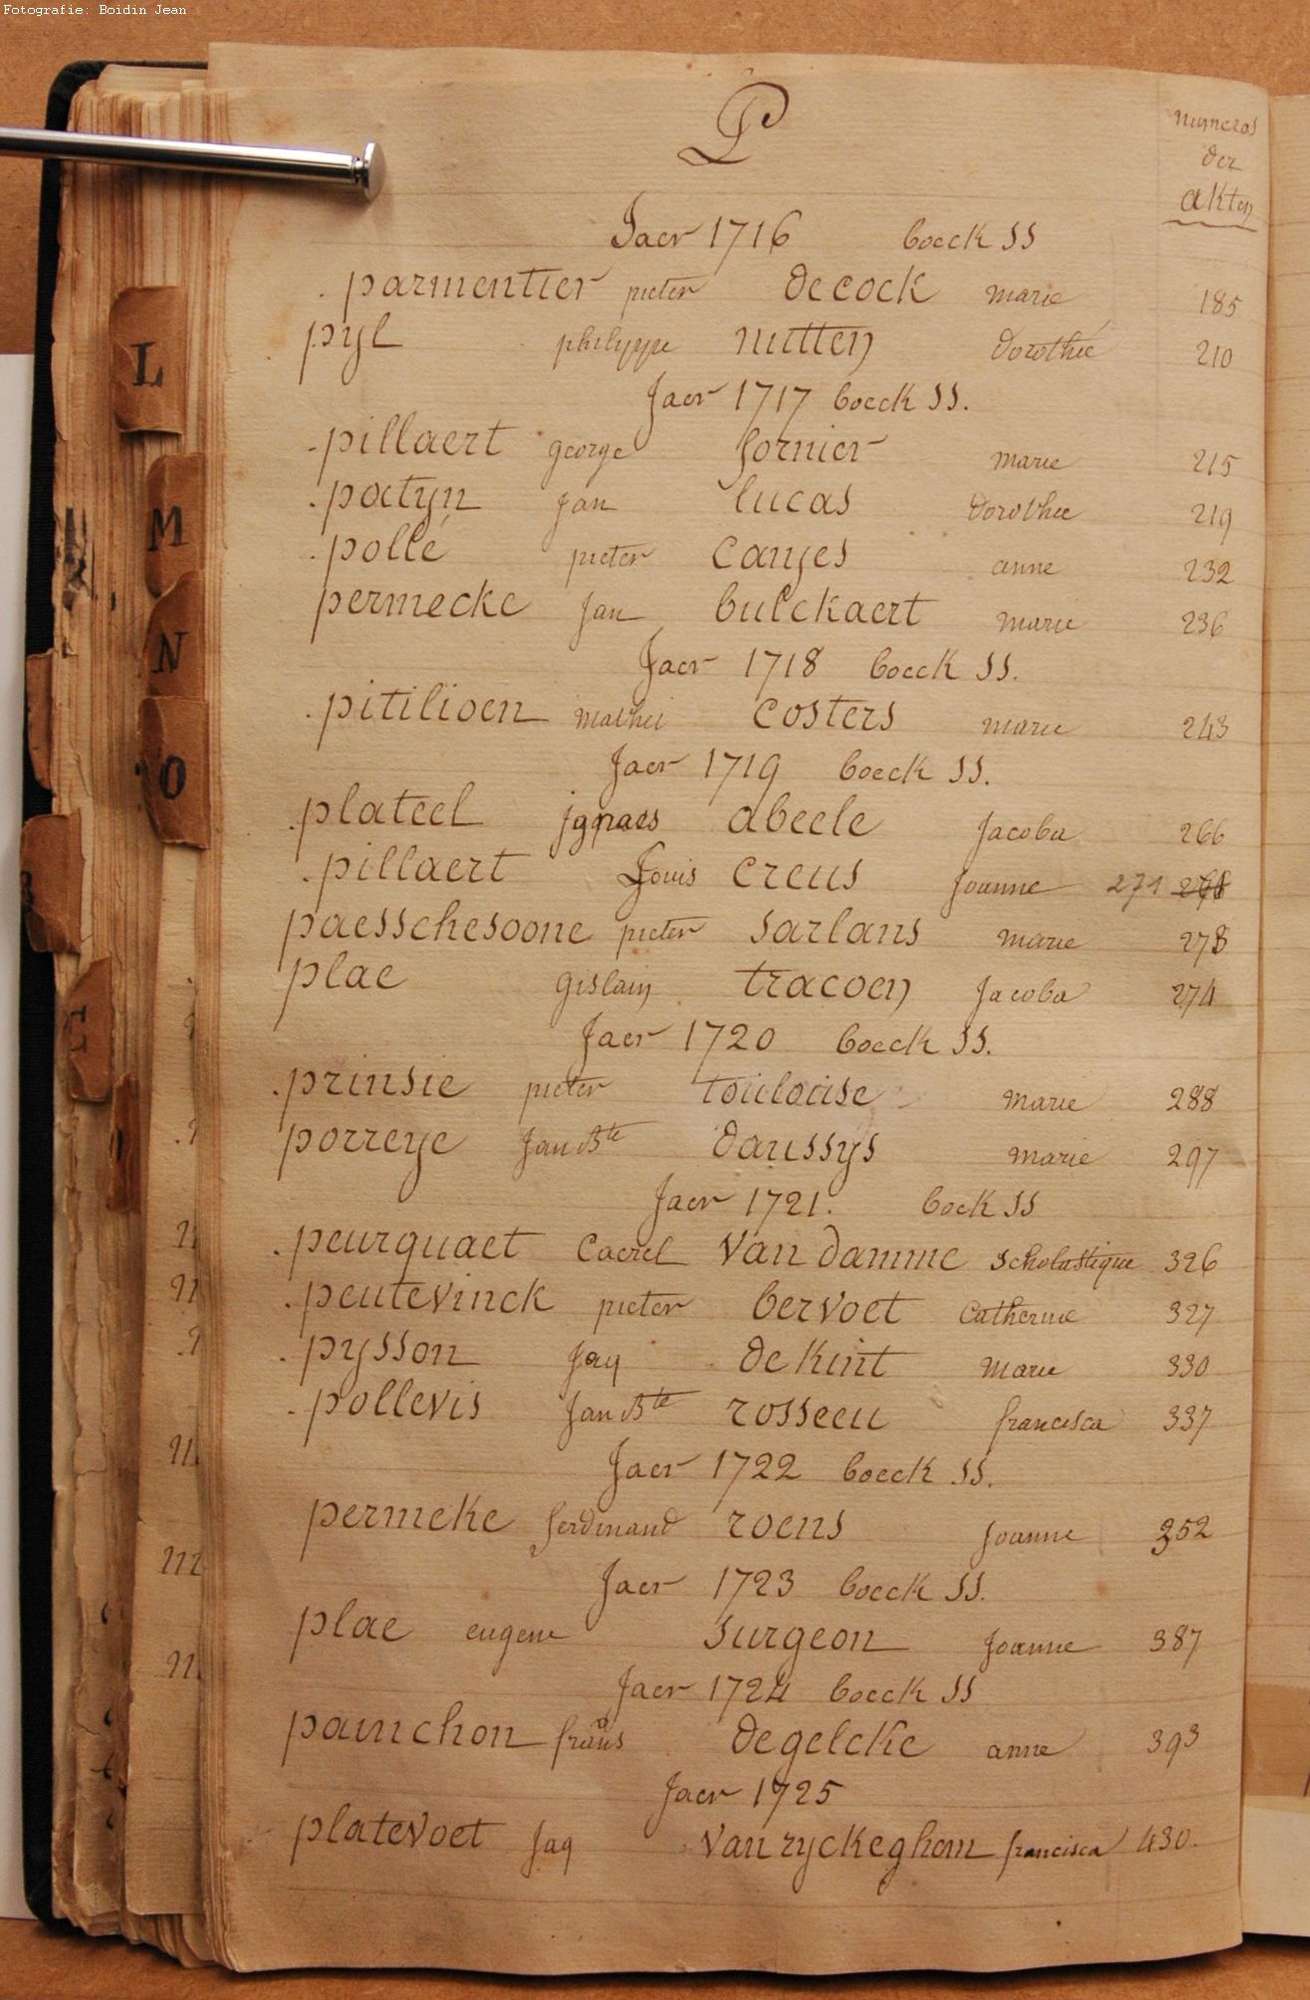 Fotografie: Boidin Jean
P
numeros
der
akten
Jaer 1716 boeck SS
parmentier pieter decock marie 185
pyl philyppe nutten dorothée 210
Jaer 1717 boeck SS.
pillaert george fornier marie 215
patyn jan lucas dorothee 219
pollé pieter canjes anne 232
permecke jan bulckaert marie 236
Jaer 1718 boeck SS.
pitilioen mathei costers marie 243
Jaer 1719 boeck SS.
plateel jgnaes abeele Jacoba 266
pillaert Louis creus Joanne 271
paesschesoone pieter sarlans marie 278
plae gislain tracoen Jacoba 274
Jaer 1720 boeck SS.
prinsie pieter toulouse marie 288
porreye Jan Bte daussys marie 297
Jaer 1721. boek SS
peurquaet Caerel Van damme Scholastique 326
peutevinck pieter bervoet Catherine 327
pysson Jaq de Kint marie 330
pollevis Jan Bte rosseeu francisca 337
Jaer 1722 boeck SS.
permeke ferdinand roens Joanne 352
Jaer 1723 boeck SS.
plae eugene surgeon Joanne 387
Jaer 1724 boeck SS
painchon frans degelcke anne 393
Jaer 1725
platevoet Jaq Van ryckeghem francisca 430.
L
M
N
O